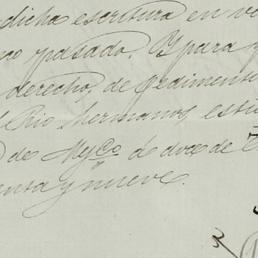 dicha escritura en v
co pasado. Y para
derecho, de pedimento
Rio hermanos, esti
de Méjco. de doce de
enta y nueve.